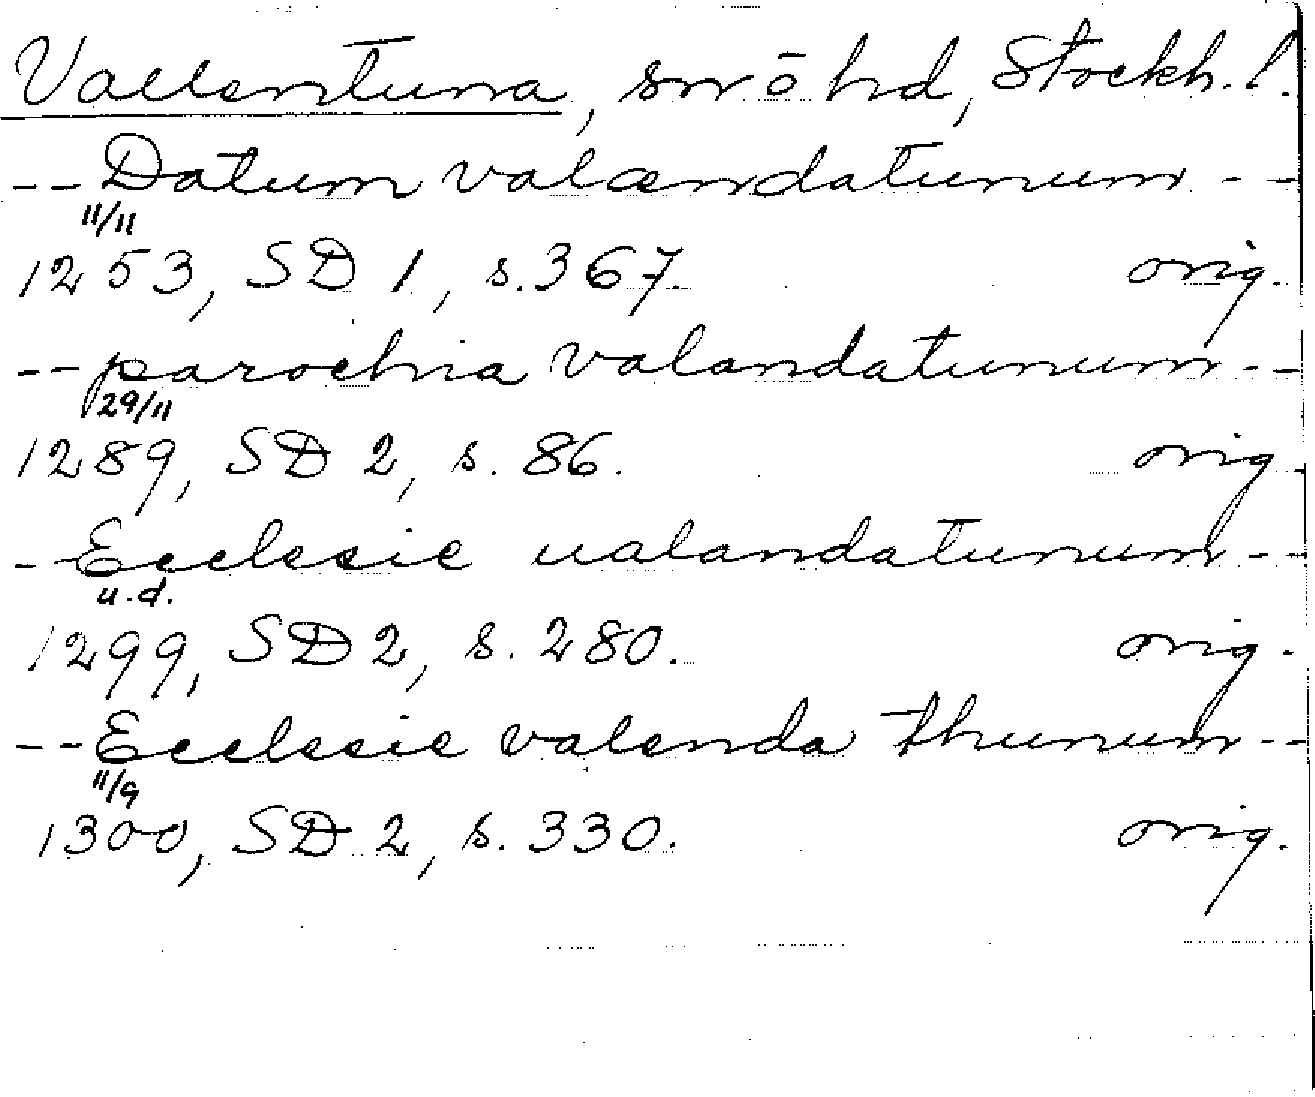 Vallentuna, sn o hd, Stockh. l.
--Datum valændatunum--
11/11
1253, SD 1, s. 367. orig.
--parochia valandatunum--
29/11
1289, SD 2, s. 86. orig.
--Ecclesie ualandatunum--
u.d.
1299, SD 2, s. 280. orig.
--Ecclesie valenda thunum--
11/9
1300, SD 2, s. 330. orig.